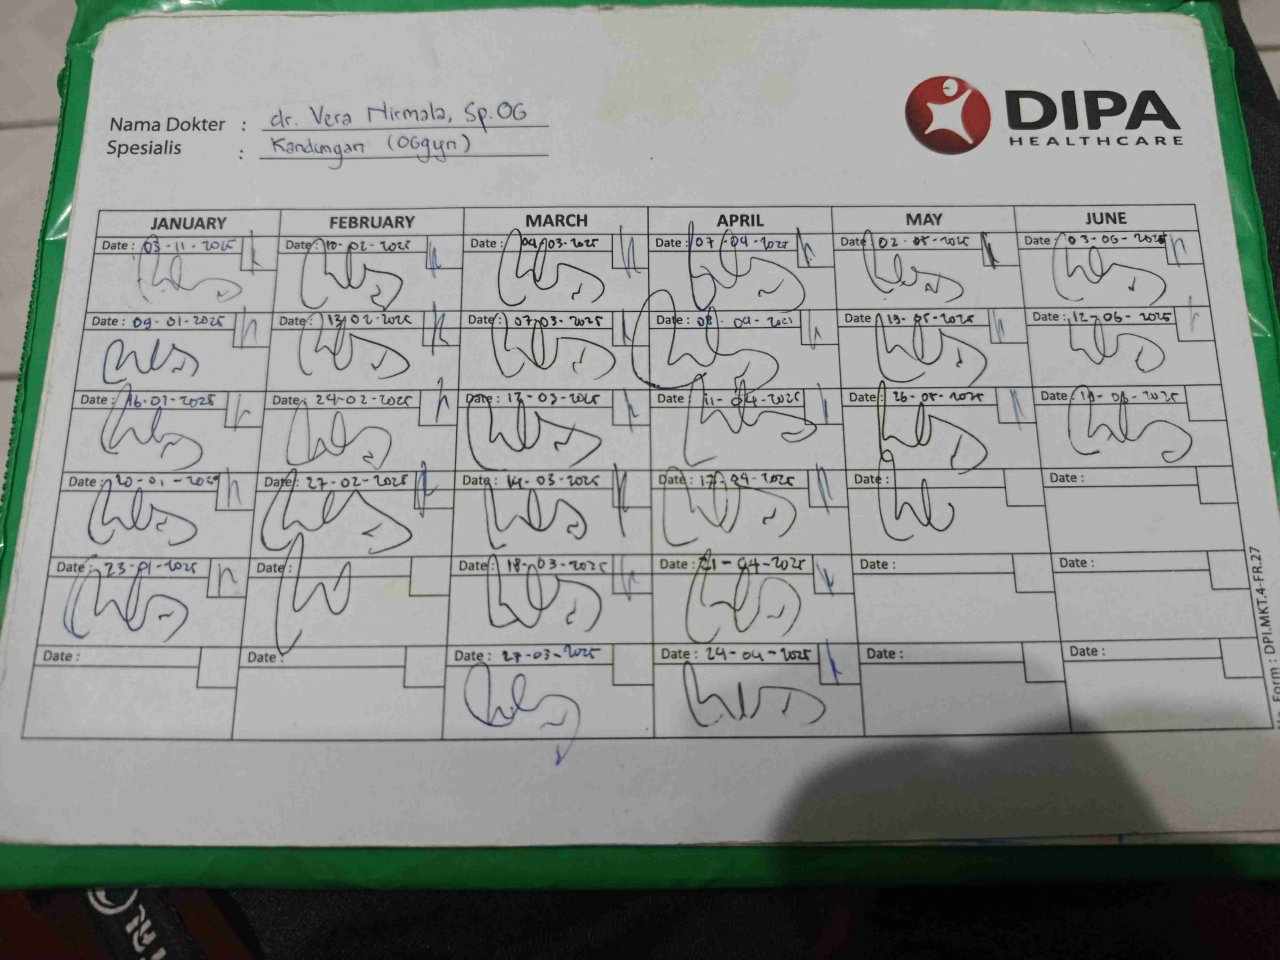 DIPA
HEALTHCARE
Nama Dokter : dr. Vera Nirmala, Sp.OG
Spesialis : Kandungan (OGgyn)
JANUARY FEBRUARY MARCH APRIL MAY JUNE
Date : 03-11-2025 Date : 10-02-2025 Date : 04-03-2025 Date : 07-04-2025 Date : 02-05-2025 Date : 03-06-2025
Date : 09-01-2025 Date : 13-02-2025 Date : 07-03-2025 Date : 08-04-2021 Date : 19-05-2025 Date : 12-06-2025
Date : 16-01-2025 Date : 24-02-2025 Date : 12-03-2025 Date : 11-04-2025 Date : 26-05-2025 Date : 19-06-2025
Date : 20-01-2025 Date : 27-02-2025 Date : 14-03-2025 Date : 17-04-2025 Date : Date :
Date : 23-01-2025 Date : Date : 18-03-2025 Date : 21-04-2025 Date : Date :
Date : Date : Date : 27-03-2025 Date : 24-04-2025 Date : Date :
Form : DPI.MKT.4-FR.27